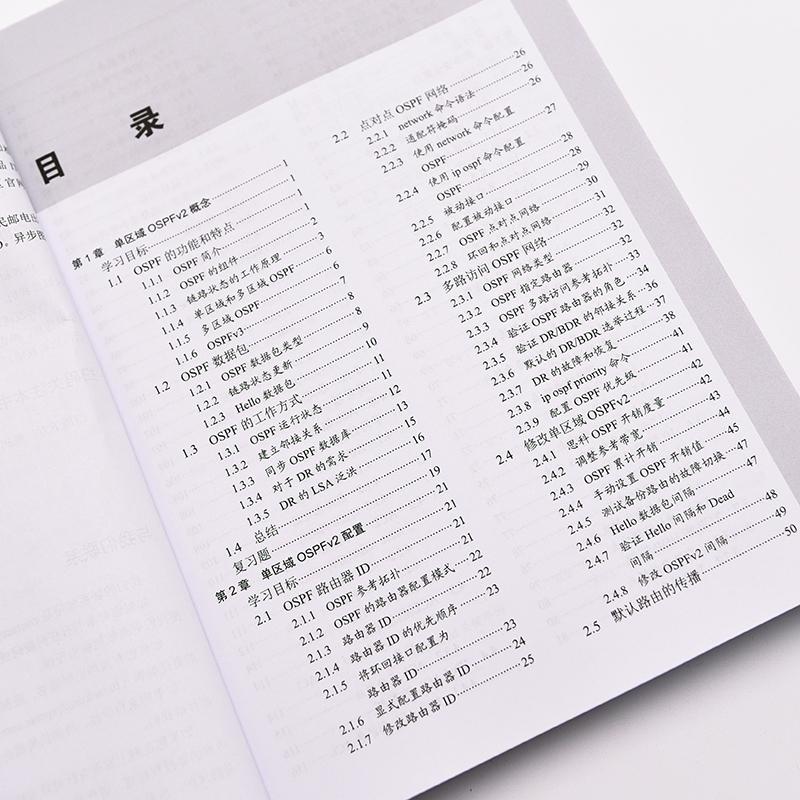 目 录
第 1 章 单区域 OSPFv2 概念 1
学习目标 1
1.1 OSPF 的功能和特点 1
1.1.1 OSPF 简介 1
1.1.2 OSPF 的组件 2
1.1.3 链路状态的工作原理 3
1.1.4 单区域和多区域 OSPF 6
1.1.5 多区域 OSPF 6
1.1.6 OSPFv3 7
1.2 OSPF 数据包 8
1.2.1 OSPF 数据包类型 8
1.2.2 链路状态更新 9
1.2.3 Hello 数据包 10
1.3 OSPF 的工作方式 10
1.3.1 OSPF 运行状态 11
1.3.2 建立邻接关系 12
1.3.3 同步 OSPF 数据库 13
1.3.4 对于 DR 的需求 15
1.3.5 DR 的 LSA 泛洪 16
1.4 总结 17
复习题 19
第 2 章 单区域 OSPFv2 配置 21
学习目标 21
2.1 OSPF 路由器 ID 21
2.1.1 OSPF 参考拓扑 21
2.1.2 OSPF 的路由器配置模式 22
2.1.3 路由器 ID 22
2.1.4 路由器 ID 的优先顺序 23
2.1.5 将环回接口配置为
路由器 ID 23
2.1.6 显式配置路由器 ID 24
2.1.7 修改路由器 ID 25
2.2 点对点 OSPF 网络 26
2.2.1 network 命令语法 26
2.2.2 通配符掩码 26
2.2.3 使用 network 命令配置
OSPF 27
2.2.4 使用 ip ospf 命令配置
OSPF 28
2.2.5 被动接口 28
2.2.6 配置被动接口 29
2.2.7 OSPF 点对点网络 30
2.2.8 环回和点对点网络 31
2.3 多路访问 OSPF 网络 31
2.3.1 OSPF 网络类型 32
2.3.2 OSPF 指定路由器 33
2.3.3 OSPF 多路访问参考拓扑 33
2.3.4 验证 OSPF 路由器的角色 34
2.3.5 验证 DR/BDR 的邻接关系 36
2.3.6 默认的 DR/BDR 选举过程 37
2.3.7 DR 的故障和恢复 38
2.3.8 ip ospf priority 命令 41
2.3.9 配置 OSPF 优先级 41
2.4 修改单区域 OSPFv2 42
2.4.1 思科 OSPF 开销度量 42
2.4.2 调整参考带宽 43
2.4.3 OSPF 累计开销 44
2.4.4 手动设置 OSPF 开销值 45
2.4.5 测试备份路由的故障切换 47
2.4.6 Hello 数据包间隔 47
2.4.7 验证 Hello 间隔和 Dead
间隔 48
2.4.8 修改 OSPFv2 间隔 49
2.5 默认路由的传播 50